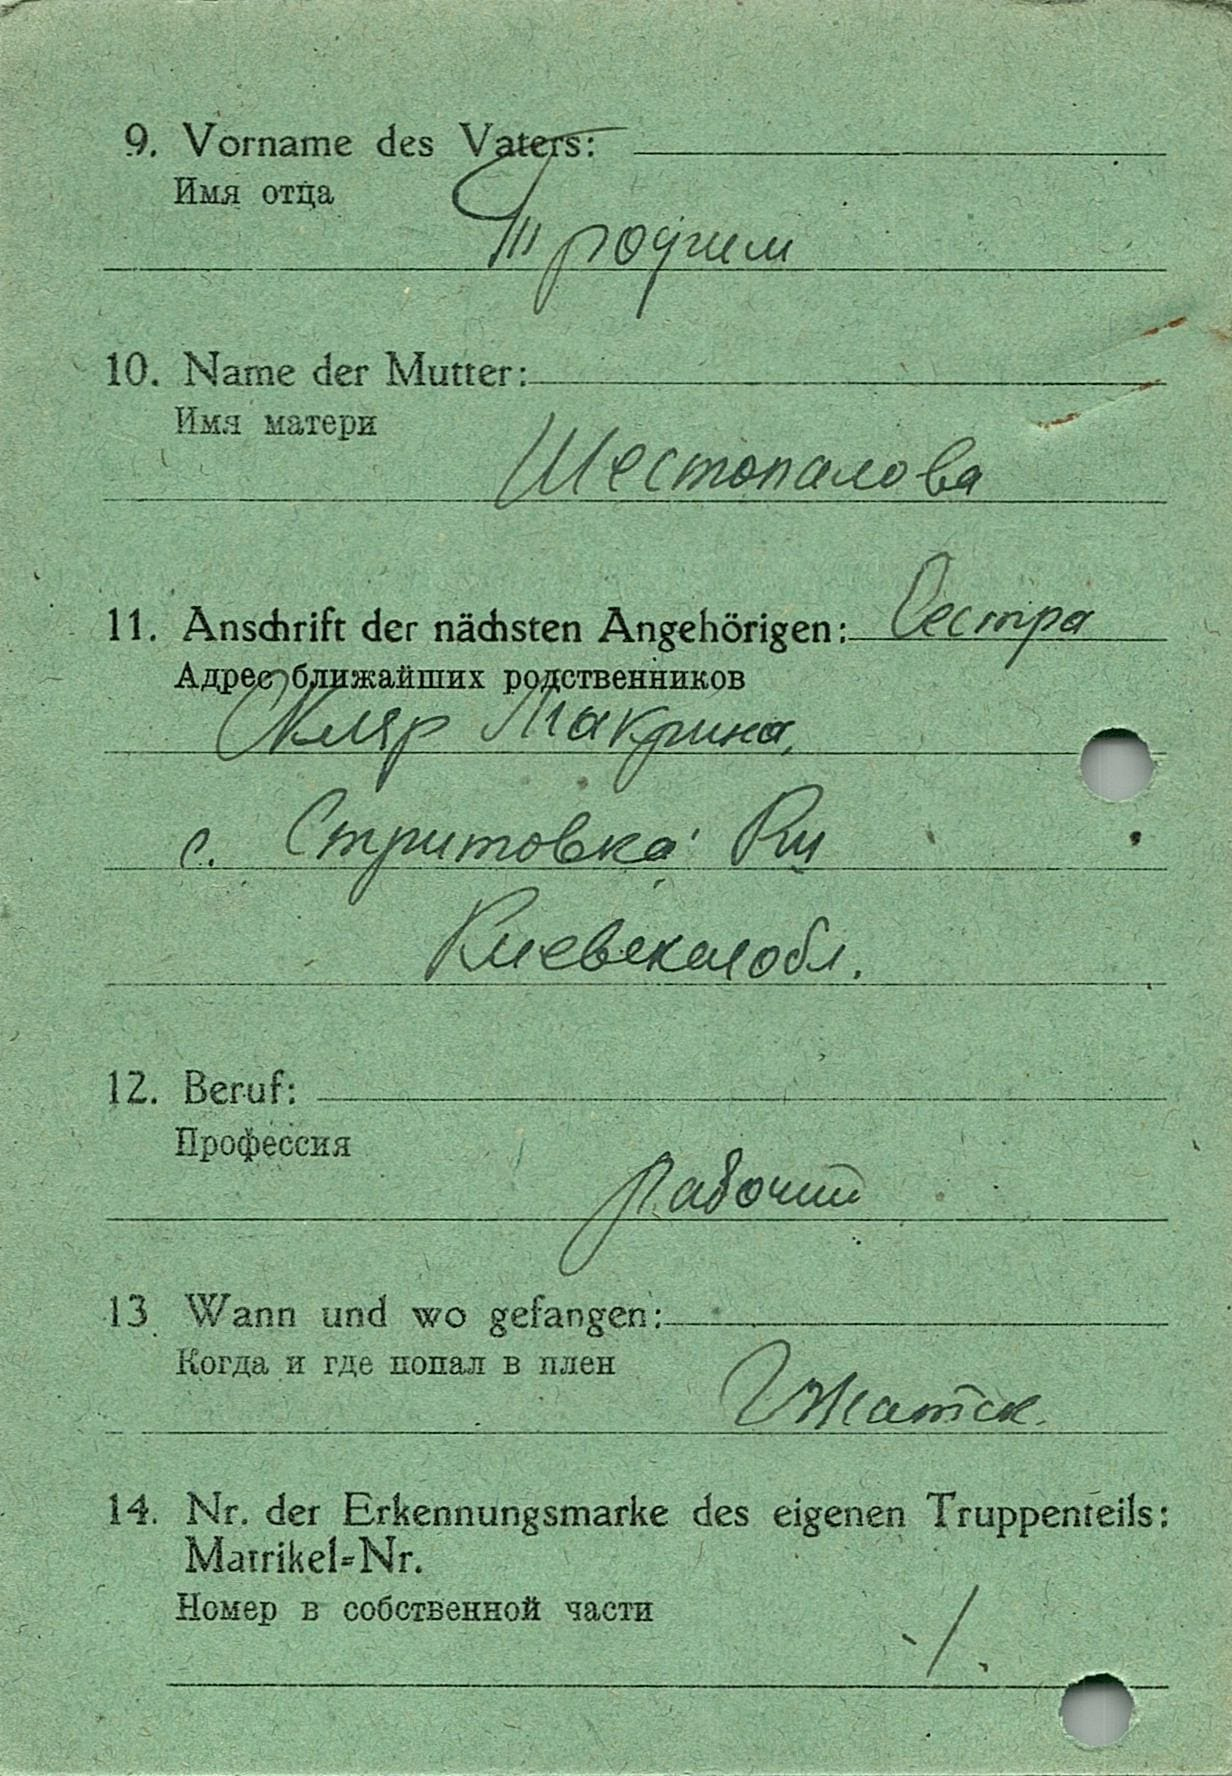 9. Vorname des Vaters:
Имя отца
Трофим
10. Name der Mutter:
Имя матери
Шестопалова
11. Anschrift der nächsten Angehörigen: Сестра
Адрес ближайших родственников
Скляр Макрина,
с. Стритовка
Киевская обл.
12. Beruf:
Профессия
Рабочий
13 Wann und wo gefangen:
Когда и где попал в плен
Гжатск.
14. Nr. der Erkennungsmarke des eigenen Truppenteils:
Matrikel=Nr.
Номер в собственной части
./.